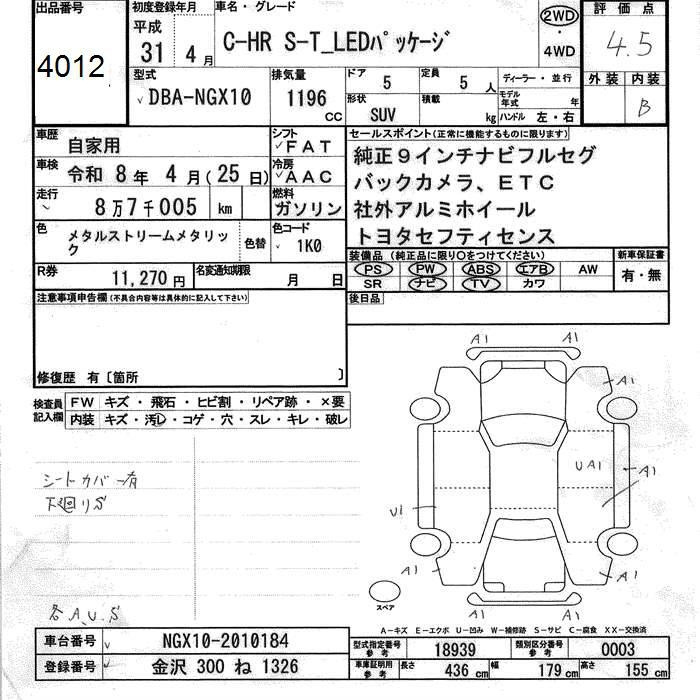 出品番号
4012
初度登録年月
平成
31 4月
車名・グレード
C-HR S-T_LEDパッケージ
2WD
・
4WD
評価点
4.5
外装 内装
B
型式
DBA-NGX10
排気量
1196
CC
ドア
5
定員
5人
形状
SUV
積載
kg
ディーラー・並行
モデル年式 年
ハンドル 左・右
車歴
自家用
シフト
FAT
車検
令和 8年 4月(25日)
冷房
AAC
走行
8万7千005 km
燃料
ガソリン
色
メタルストリームメタリック
色替
色コード
1K0
R券
11,270円
名変通知期限
月 日
セールスポイント(正常に機能するものに限ります)
純正9インチナビフルセグ
バックカメラ、ETC
社外アルミホイール
トヨタセフティセンス
装備品(純正品に限り○をつけてください)
PS PW ABS エアB AW
SR ナビ TV カワ
新車保証書
有・無
後日品
注意事項申告欄(不具合内容等は具体的に記入して下さい)
修復歴 有〔箇所 〕
検査員記入欄
FW キズ・飛石・ヒビ割・リペア跡・×要
内装 キズ・汚れ・コゲ・穴・スレ・キレ・破レ
シートカバー有
下廻りS
各A.U.S
A1 A1
A1
UA1
A1
U1
A1
A1
A1 A1
スペア
A-キズ E-エクボ U-凹み W-補修跡 S-サビ C-腐食 XX-交換済
車台番号
NGX10-2010184
登録番号
金沢 300 ね 1326
型式指定番号参考
18939
類別区分番号参考
0003
車庫証明用参考
長さ 436 cm 幅 179 cm 高さ 155 cm